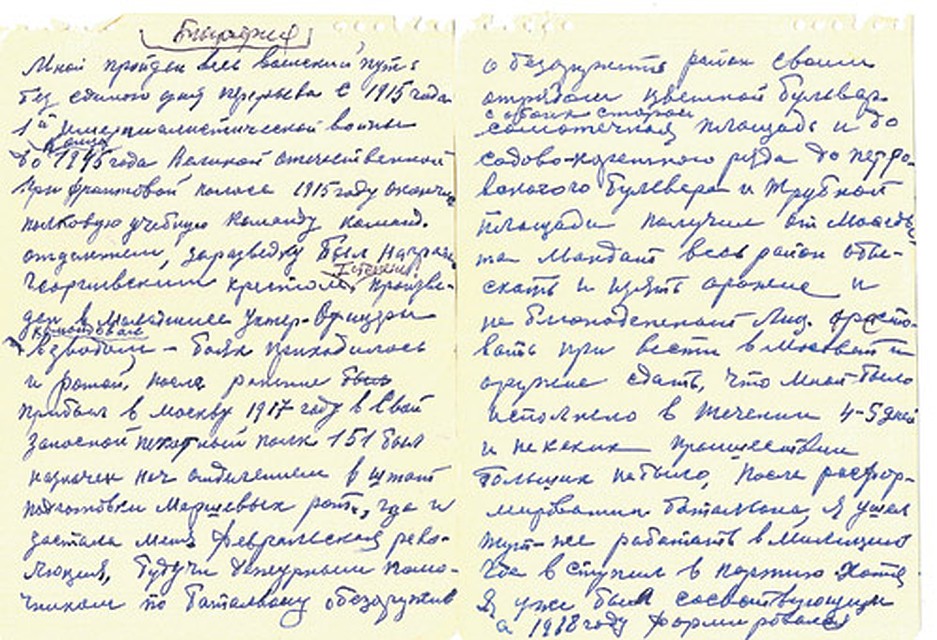 Биография
Мной пройден весь воинский путь
без единого дня перерыва с 1915 года
1й Империалистической войны
до конца 1945 года Великой отечественной
При фронтовой полосе 1915 году окончил
полковую учебную команду команд.
отделения, за разведку был награж
Георгиевским крестом Iстепени произве-
ден в Младшие Унтер-Офицеры
командовал взводом – боях приходилось
и ротой, после ранения
прибыл в Москву 1917 году в свой
Запасной пехотный полк 151 был
назначен нач отделением в штат
подготовки Маршевых рот, где и
застала меня Февральская рево-
люция, будучи дежурным помо-
щником по Батальону обезоружив
о безоружить район своим
отрядом Цветной бульвар
с обоих сторон
самотечная площадь и до
садово-коретного ряда до петро-
вского Бульвара и Трубной
площади получил от Моское
та Мандант весь район обы-
скать и изъять оружие и
не благонадежных лиц. аресто-
вать при вести в Москвет и
оружие сдать, что мной было
исполнено в течении 4-5 дней
и некаких происшествии
больших небыло, После расфор-
мирования батальона, Я ушел
тут-же работать в милицию
где вступил в партию Хотя
Я уже был сосвствующим
а 1918 году формировался